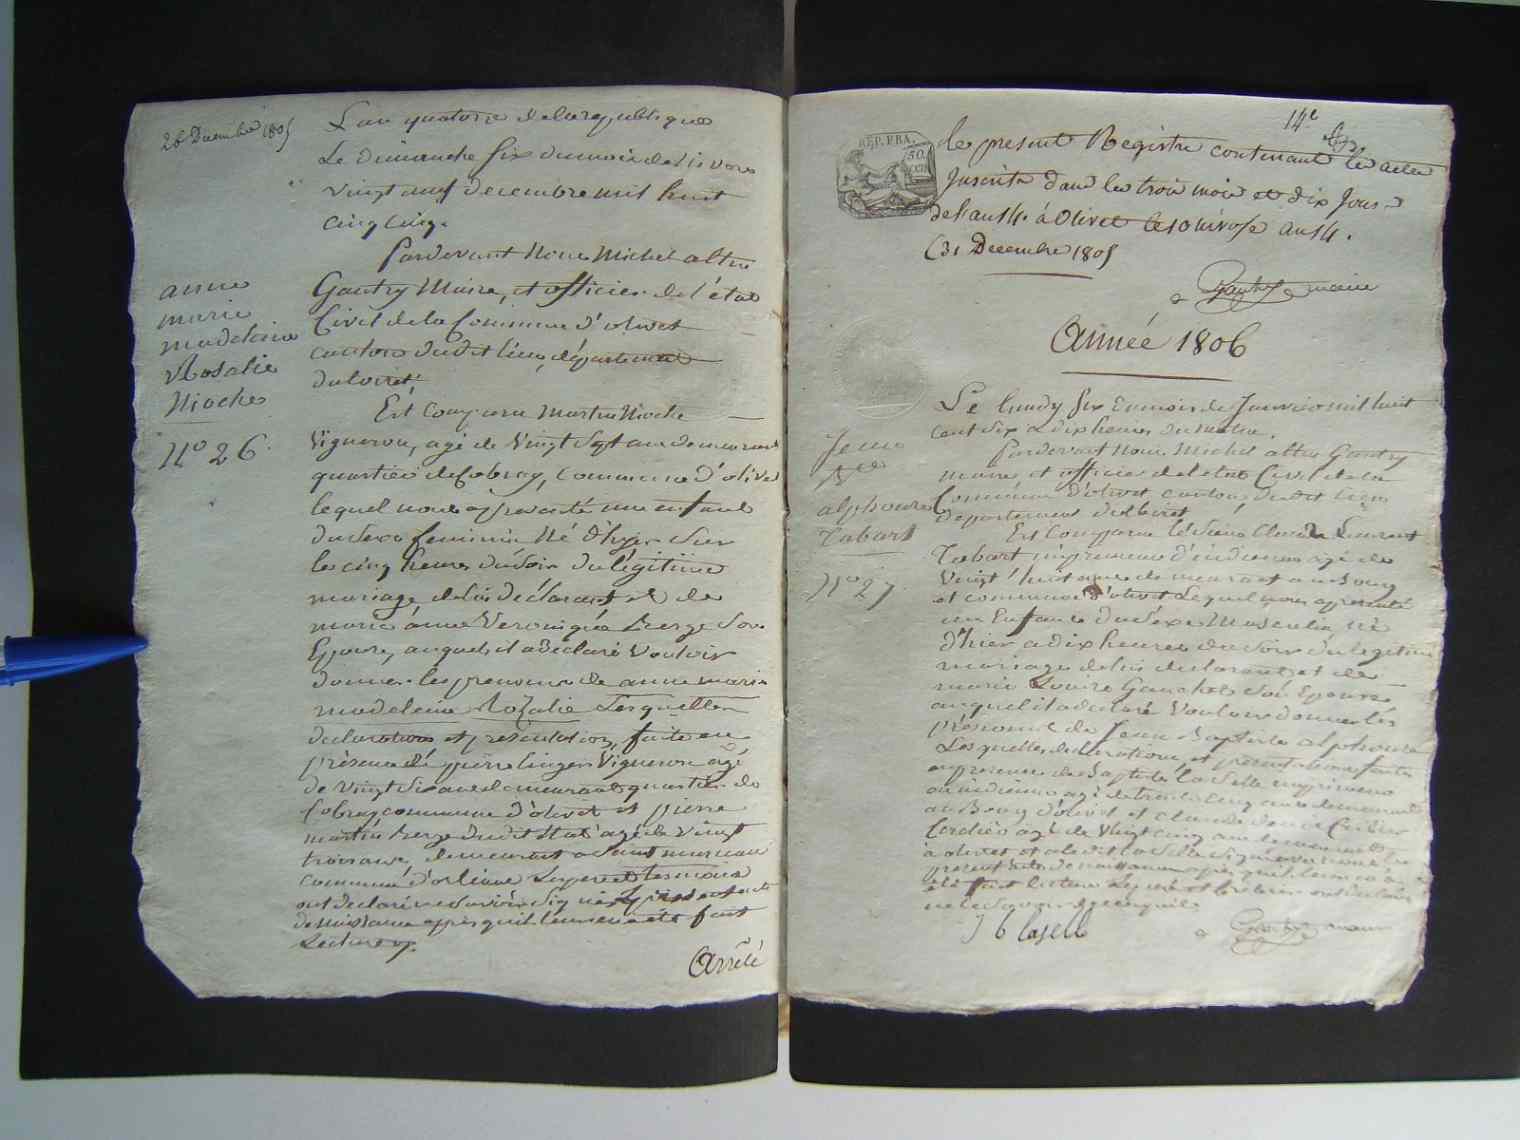 26 Decembre 1805
L'an quatorze de la republique
Le dimanche six du mois de nivose
vingt neuf decembre mil huit
cinq cinq.
Pardevant Nous Michel altin
Gautry Maire, et officier de l'état
Civil de la Commune d'olivet
canton dudit lieu, département
du loiret,
Est Comparu Martin Nioche
Vigneron, agé de Vingt Sept ans demeurant
quartier de Cobray, commune d'olivet
lequel nous a presenté un enfant
du Sexe feminin Né d'hyer Sur
les cinq heures du Soir du légitime
mariage de lui déclarant et de
marie anne Veronique Berge Son
Epouse, auquel il a déclaré Vouloir
donner les prenoms de anne marie
madeleine Rozalie Lesquelles
declaration et presentation, faite en
présence de pierre Vigneron agé
de vingt Six ans demeurant quartier de
Cobray commune d'olivet et pierre
martin Berge dudit Etat agé de Vingt
trois ans, demeurant a Saint marceau
commune d'orléans Le pere et temoins
ont declaré ne savoir Signer Le present acte
de Naissance apres qu'il leur en a été fait
Lecture.
Arrêté
anne
marie
madelaine
Rosalie
Nioche
N° 26.
14.e
REP. FRA.
50.
le present Registre contenant les actes
Inscrits dans les trois mois et dix Jours
de l'an 14. à Olivet le 10 Nivose an 14.
(31 Decembre 1805
Gautry maire
Année 1806
Le lundy Six du mois de Janvier mil huit
cent Six a dix heures du matin.
Pardevant Nous, Michel altin Gautry
maire et officier de l'etat Civil de la
Commune d'olivet canton dudit lieu
departement du loiret
Est Comparu le Sieur Claude Laurent
Tabart imprimeur d'indienne agé de
Vingt huit ans demeurant au Bourg
et commune d'olivet Lequel nous a presenté
un Enfant du Séxe Masculin, né
d'hier a dix heures du Soir du légitime
mariage de lui declarant et de
marie Louise Gauchet Son Epouse
auquel il a declaré Vouloir donner les
prénoms de Jean Baptiste alphonse
Lesquelles declaration, et presentation faites
en presence de Baptiste laselle imprimeur
en indienne agé de trente Cinq ans demeurant
au Bourg d'olivet et Claude
Cordier agé de Vingt Cinq ans demeurant
à olivet et a ledit laselle Signé avec nous le
present acte de naissance apres qu'il leur en a
été fait lecture Le pere et ont declaré
ne le Savoir de ce enquis.
J b laselle
Gautry maire
Jean
Bte
alphonse
Tabart
N° 27.